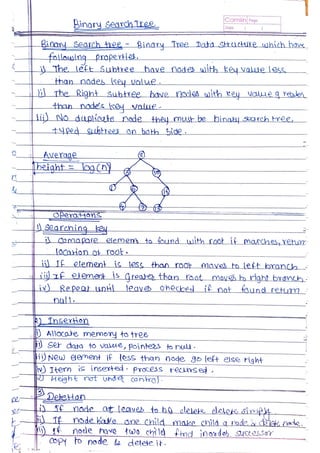 Binary Search Tree
Binary Search tree - Binary Tree Data Structure which have
following properties.
i) The left Subtree have nodes with key value less
than nodes key value.
ii) The Right Subtree have nodes with key value greater
than node's key value.
iii) No duplicate node they must be binary search tree,
typed subtrees on both side.
Average
height = log(n)
Operations
1) Searching key
i) Comapare element to found with root if matches, return
location of root.
ii) If element is less than root moves to left branch.
iii) If element is greater than root moves to right branch.
iv) Repeat until leaves checked if not found return
null.
2) Insertion
i) Allocate memory to tree
ii) Set data to value, pointers to null.
iii) New element if less than node go left else right
iv) Item is inserted. Process recursed.
v) Height not under control.
3) Deletion
i) If node at leaves to be delete, delete simply
ii) If node have one child make child a node & delete node.
iii) If node have two child find inorder successor
copy to node & delete it.